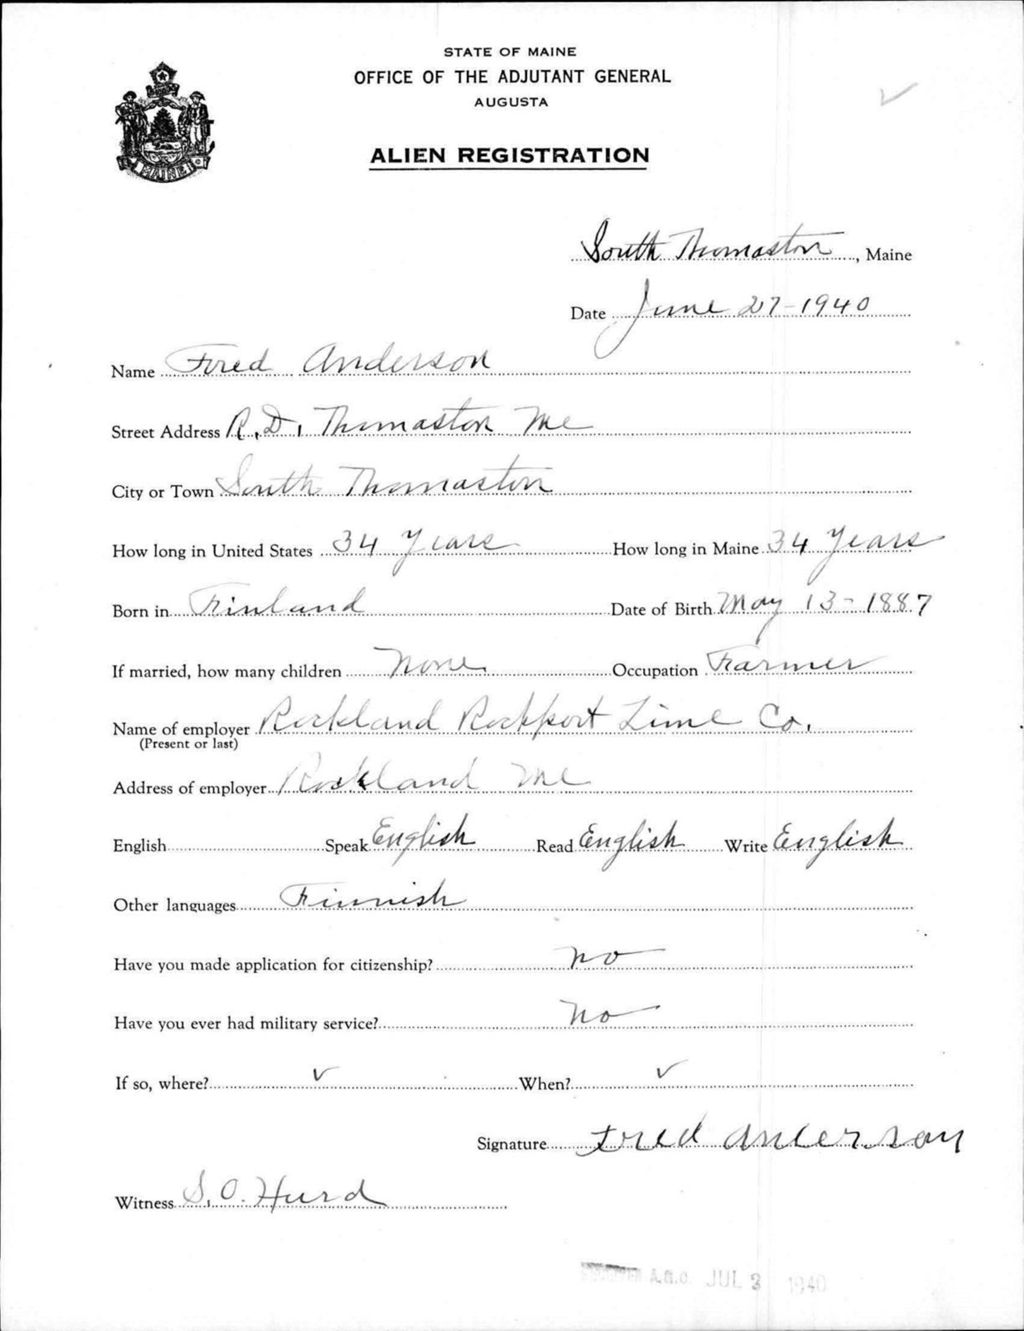 STATE OF MAINE
OFFICE OF THE ADJUTANT GENERAL
AUGUSTA
ALIEN REGISTRATION
MAINE
South Thomaston, Maine
Date June 27-1940
Name Fred Anderson
Street Address R.D. Thomaston Me
City or Town South Thomaston
How long in United States 34 Years How long in Maine 34 Years
Born in Finland Date of Birth May 13-1887
If married, how many children None Occupation Farmer
Name of employer Rockland Rockport Lime Co.
(Present or last)
Address of employer Rockland Me
English Speak English Read English Write English
Other languages Finnish
Have you made application for citizenship? no
Have you ever had military service? No
If so, where? ✓ When? ✓
Signature Fred Anderson
Witness S.O. Hurd
RECEIVED A.G.O. JUL 3 1940